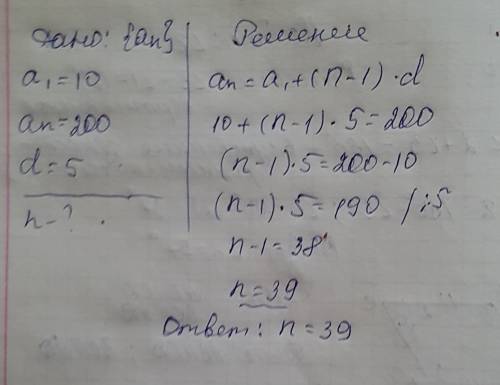 Дано: {an}
a₁=10
an=200
d=5
n-?
Решение
an=a₁+(n-1)·d
10+(n-1)·5=200
(n-1)·5=200-10
(n-1)·5=190 /:5
n-1=38
n=39
Ответ: n=39